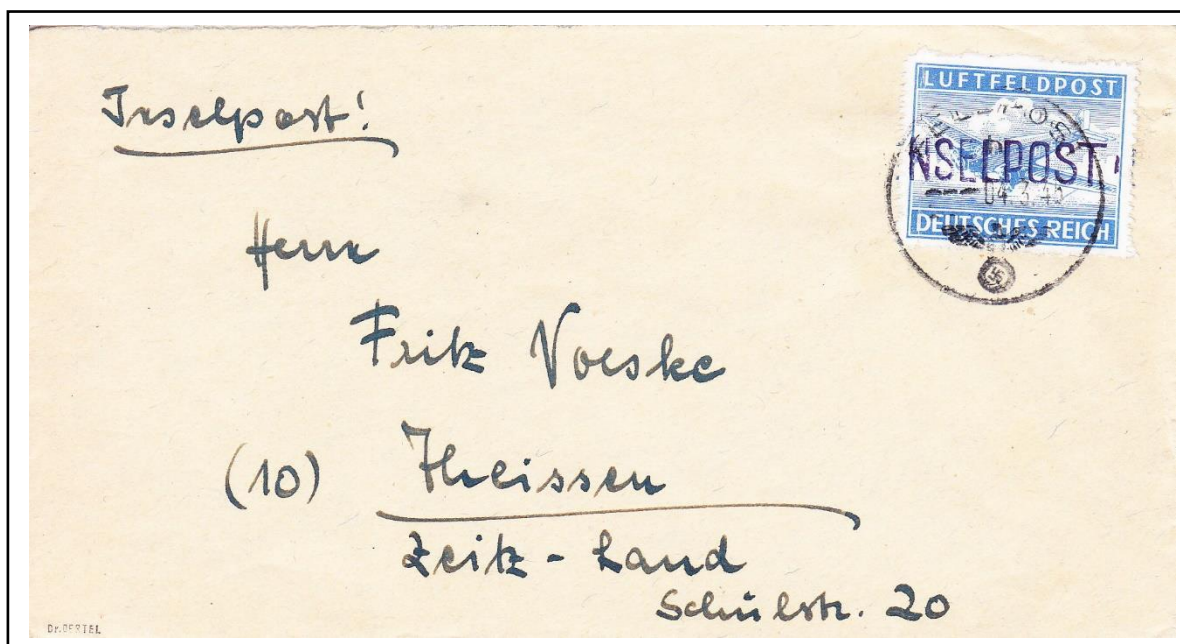 Inselpost!
LUFTFELDPOST
FELDPOST
b
NSELPOST
04.3.45
DEUTSCHES REICH
Herrn
Fritz Voeske
(10) Theissen
Zeitz - Land
Schulstr. 20
Dr. OERTEL